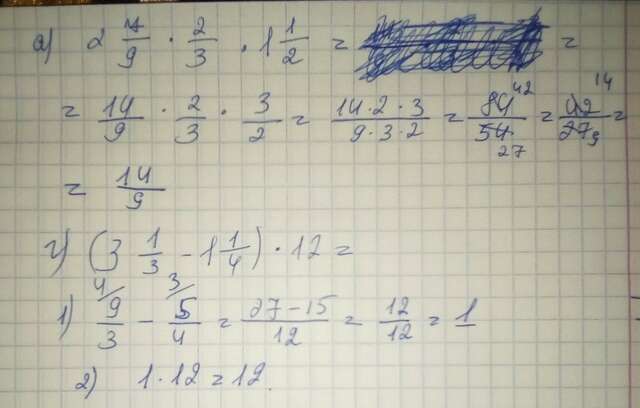 а) 2 7/9 · 2/3 · 1 1/2 = =
= 14/9 · 2/3 · 3/2 = 14·2·3/9·3·2 = 84 42/54 27 = 42 14/27 9 =
= 14/9
г) (3 1/3 - 1 1/4) · 12 =
1) 4/ 9/3 - 3/ 5/4 = 27-15/12 = 12/12 = 1
2) 1 · 12 = 12.